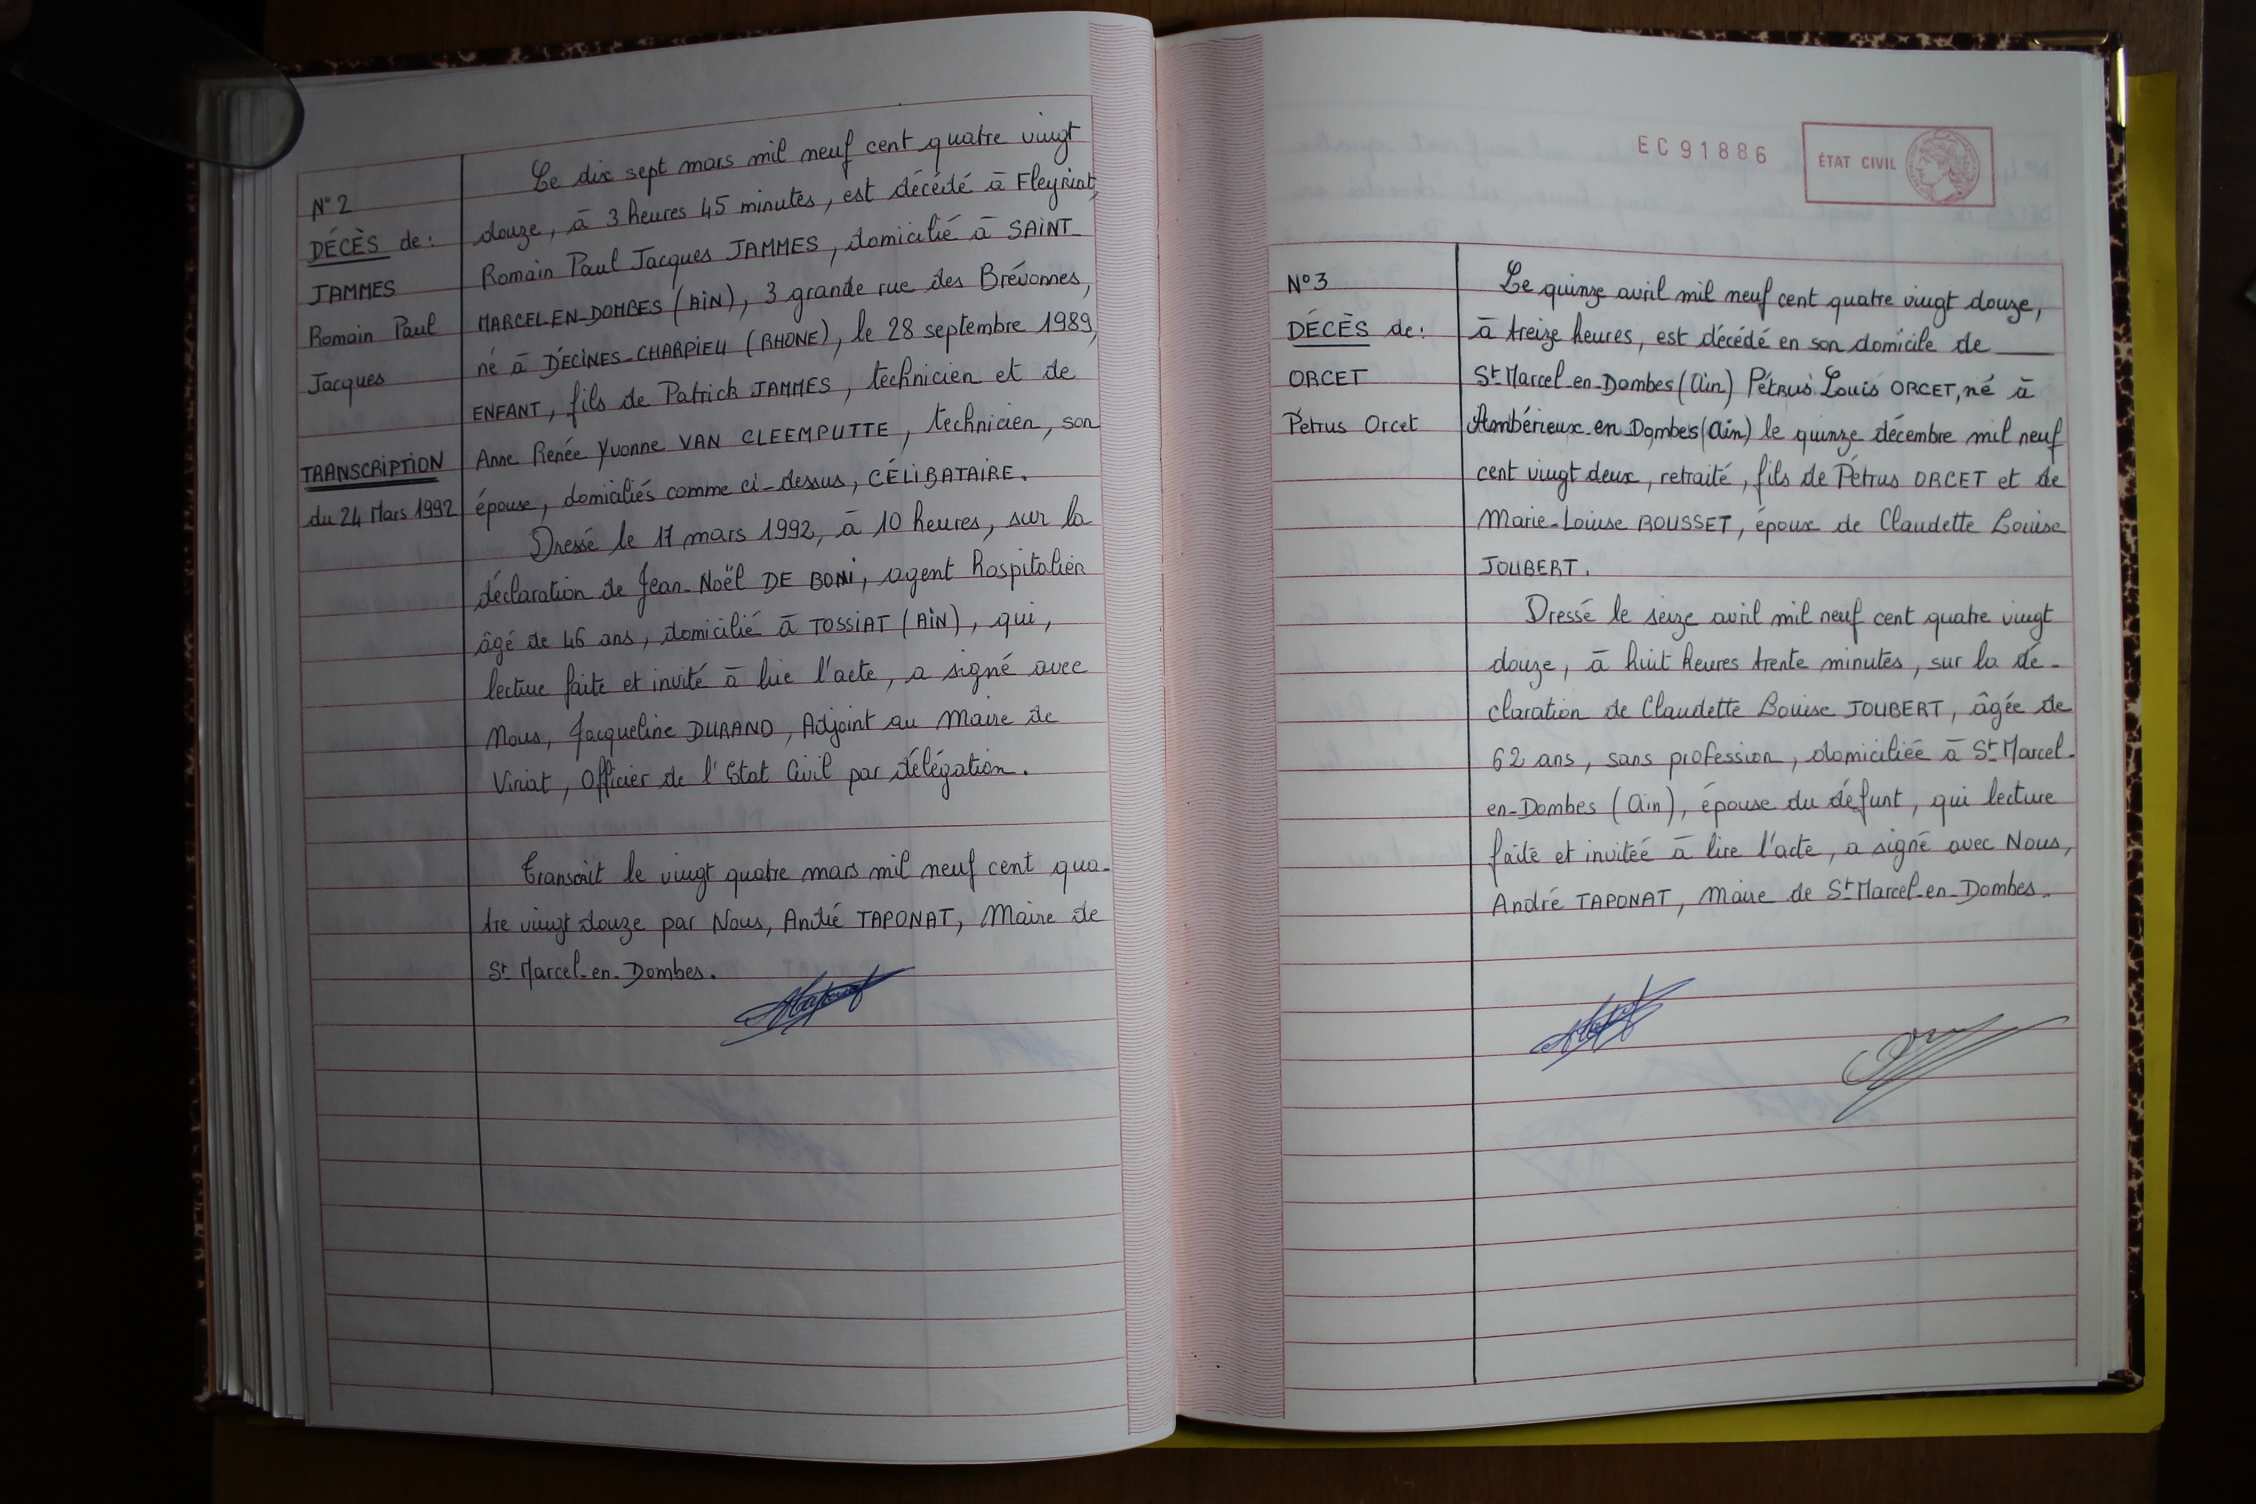 N° 2
DÉCÈS de:
JAMMES
Romain Paul
Jacques
TRANSCRIPTION
du 24 Mars 1992
Le dix sept mars mil neuf cent quatre vingt
douze, à 3 heures 45 minutes, est décédé à Fleyriat,
Romain Paul Jacques JAMMES, domicilié à SAINT-
MARCEL-EN-DOMBES (AIN), 3 grande rue des Brévonnes,
né à DÉCINES-CHARPIEU (RHONE), le 28 septembre 1989,
ENFANT, fils de Patrick JAMMES, technicien et de
Anne Renée Yvonne VAN CLEEMPUTTE, technicien, son
épouse, domiciliés comme ci-dessus, CÉLIBATAIRE.
Dressé le 17 mars 1992, à 10 heures, sur la
déclaration de Jean-Noël DE BONI, agent hospitalier
âgé de 46 ans, domicilié à TOSSIAT (AIN), qui,
lecture faite et invité à lire l'acte, a signé avec
Nous, Jacqueline DURAND, Adjoint au Maire de
Viriat, Officier de l'Etat Civil par délégation.
Transcrit le vingt quatre mars mil neuf cent qua-
tre vingt douze par Nous, André TAPONAT, Maire de
St Marcel-en-Dombes.
EC91886
ÉTAT CIVIL
N° 3
DÉCÈS de:
ORCET
Pétrus Orcet
Le quinze avril mil neuf cent quatre vingt douze,
à treize heures, est décédé en son domicile de
St Marcel-en-Dombes (Ain) Pétrus Louis ORCET, né à
Ambérieux-en-Dombes (Ain) le quinze décembre mil neuf
cent vingt deux, retraité, fils de Pétrus ORCET et de
Marie-Louise ROUSSET, époux de Claudette Louise
JOUBERT.
Dressé le seize avril mil neuf cent quatre vingt
douze, à huit heures trente minutes, sur la dé-
claration de Claudette Louise JOUBERT, âgée de
62 ans, sans profession, domiciliée à St Marcel-
en-Dombes (Ain), épouse du défunt, qui lecture
faite et invitée à lire l'acte, a signé avec Nous,
André TAPONAT, Maire de St Marcel-en-Dombes.